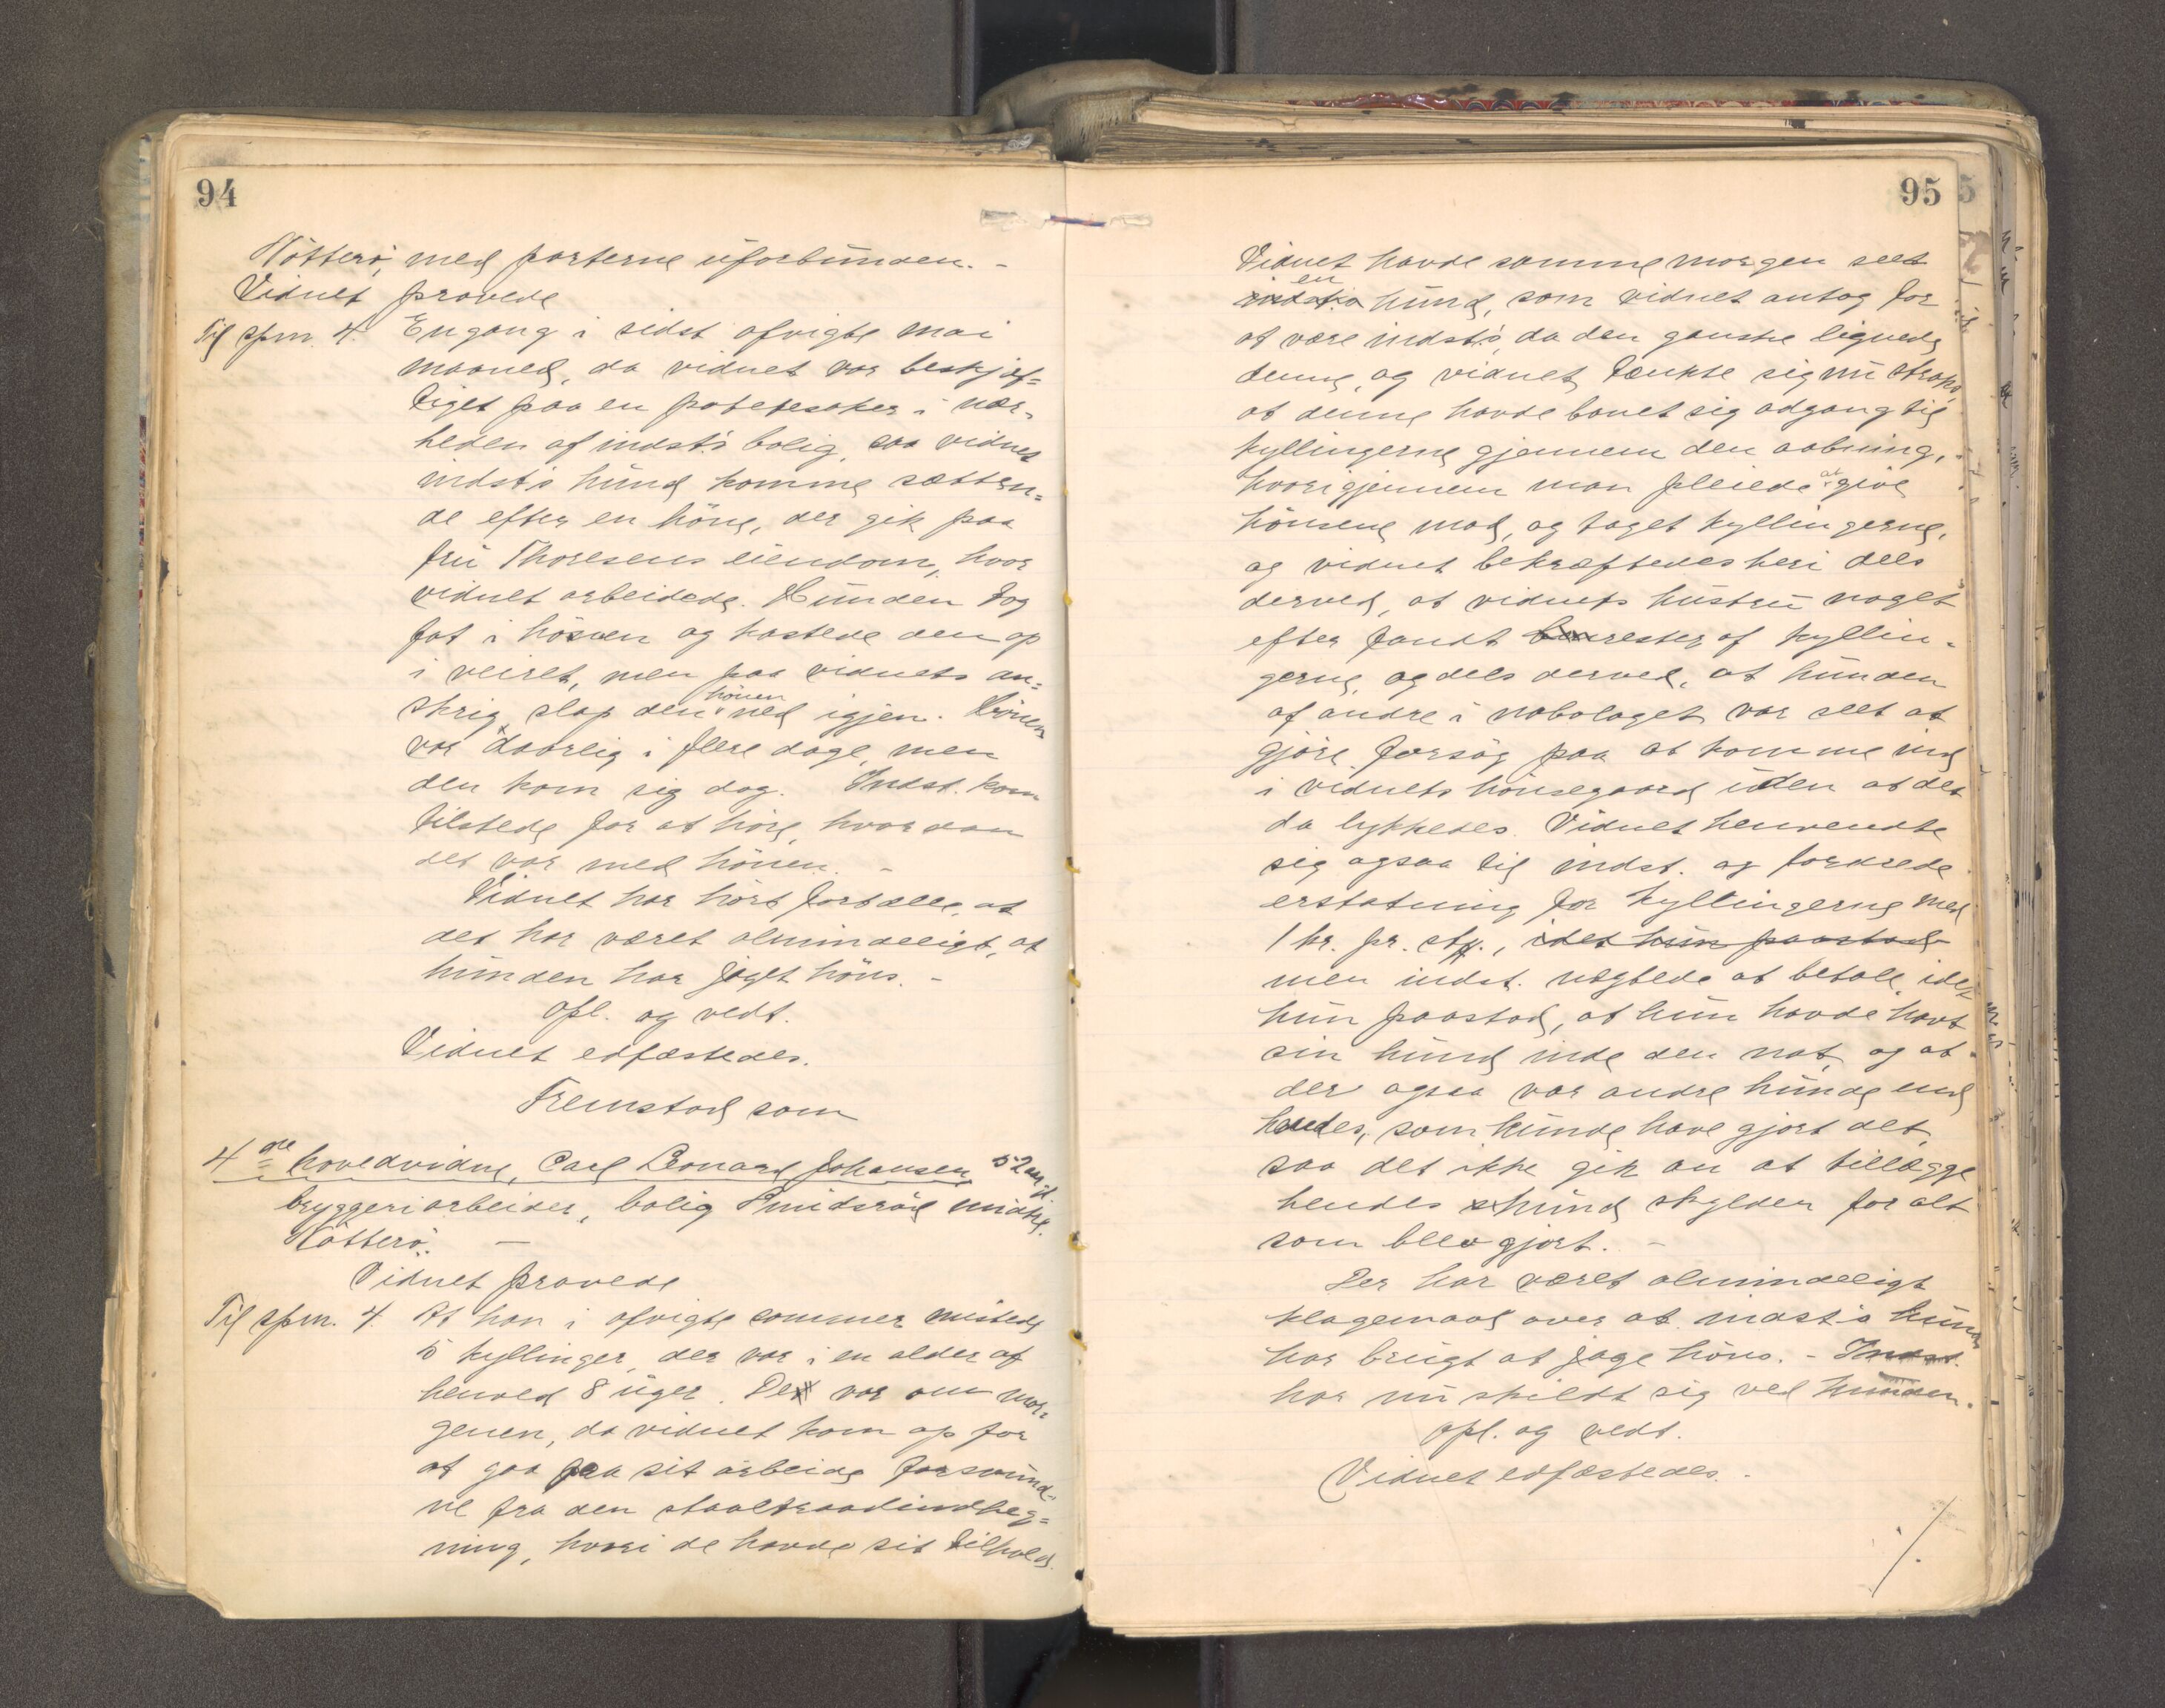 94
Nötterö, med parterne uforbunden. -
Vidnet provede
Til spm. 4. Engang i sidst afvigte mai
maaned, da vidnet var beskjæf=
tiget paa en potetesaker i nær-
heden af indst's bolig, saa vidnet
indst's hund komme sætten=
de efter en höne, der gik paa
fru Thoresens eiendom, hvor
vidnet arbeidede. Hunden tog
fat i hönen og kastede den op
i veiret, men paa vidnets an=
skrig slap den hönen ned igjen. Hönen
var daarlig i flere dage, men
den kom sig dog. Indst. kom
tilstede for at höre, hvordan
det var med hönen. -
Vidnet har hört fortælle, at
det har været almindeligt, at
hunden har jaget höns. -
Opl. og vedt.
Vidnet edfæstedes.
Fremstod som
4de hovedvidne, Carl Leonard Johansen, 52 aar gl.
bryggeriarbeider, bolig Smidsröd midtre
Nötterö. -
Vidnet provede
Til spm. 4. At han i afvigte sommer mistede
15 kyllinger, der var i en alder af
henved 8 uger. Det var om mor=
genen, da vidnet kom op for
at gaa paa sit arbeide forsvund-
ne fra den staaltraadindheg=
ning, hvori de havde sit tilhold.
95
Vidnet havde samme morgen seet
indst's en hund, som vidnet antog for
at være indst's, da den ganske lignede
denne, og vidnet tænkte sig nu straks,
at denne havde banet sig adgang til
kyllingerne gjennem den aabning,
hvorigjennem man pleiede at give
hönsene mad, og taget kyllingerne,
og vidnet bekræftedes heri dels
derved, at vidnets hustru noget
efter fandt ben rester af kyllin-
gerne, og dels derved, at hunden
af andre i nabolaget var seet at
gjöre forsög paa at komme ind
i vidnets hönsegaard uden at det
da lykkedes. Vidnet henvendte
sig ogsaa til indst. og fordrede
erstatning for kyllingerne med
1 kr. pr. stk., idet hun paastod
men indst. nægtede at betale, idet
hun paastod, at hun havde havt
sin hund inde den nat, og at
der ogsaa var andre hunde end
hendes, som kunde have gjort det,
saa det ikke gik an at tillægge
hendes hund skylden for alt
som blev gjort. -
Der har været almindeligt
klagemaal over at indst's hund
har brugt at jage höns. - Indst.
har nu skildt sig ved hunden.
Opl. og vedt.
Vidnet edfæstedes. -